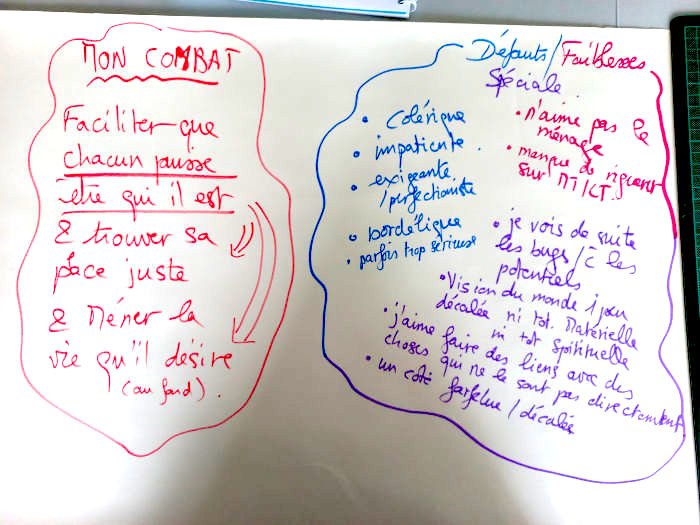 MON COMBAT
Faciliter que
chacun puisse
être qui il est
& trouver sa
place juste
& Mener la
vie qu'il désire
(au fond).
Défauts/Faiblesses
Spéciale.
• colérique
• impatiente.
• exigeante
/perfectionniste
• bordélique
• parfois trop sérieuse
• n'aime pas le
ménage
• manque de rigueur
sur MT/CT.
• je vois de suite
les bugs/c̄ les
potentiels
• Vision du monde 1 peu
décalée ni tot. Matérielle
ni tot spirituelle
• j'aime faire des liens avec des
choses qui ne le sont pas directement
• un côté farfelue/décalée